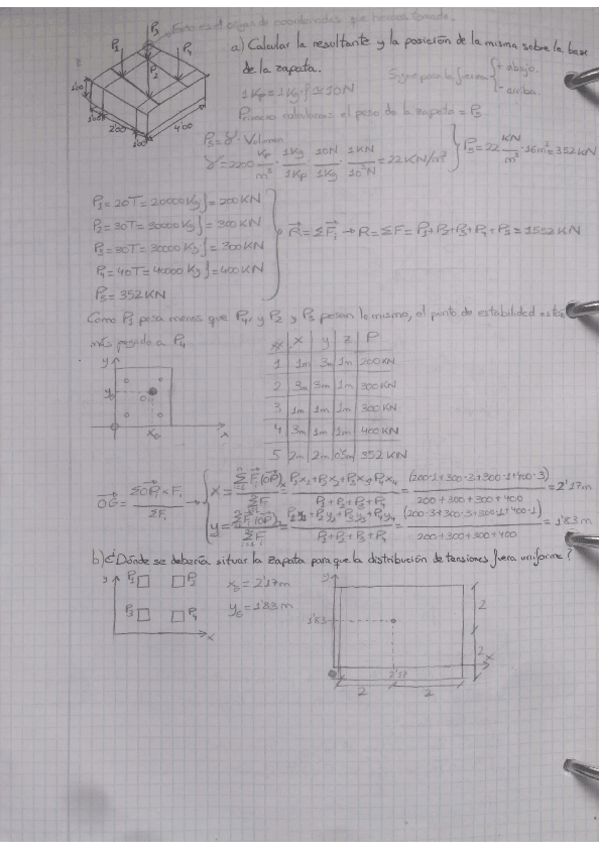 Este es el origen de coordenadas que hemos tomado.
P3
P1
P4
P2
z
1'00
1'00
2'00
1'00
4'00
a) Calcular la resultante y la posición de la misma sobre la base
de la zapata.
Signo para la fuerza { + abajo.
- arriba.
1Kp = 1Kg·f ≃ 10N
Primero calculamos el peso de la zapata = P5
P5 = γ · Volumen
γ = 2200 Kp/m³ · 1Kg/1Kp · 10N/1Kg · 1KN/10³N = 22 KN/m³ } P5 = 22 KN/m³ · 16m³ = 352 KN
P1 = 20T = 20000Kgf = 200KN
P2 = 30T = 30000Kgf = 300KN
P3 = 30T = 30000Kgf = 300KN
P4 = 40T = 40000Kgf = 400KN
P5 = 352KN
R = ΣFi → R = ΣF = P1+P2+P3+P4+P5 = 1552KN
Como P1 pesa menos que P4, y P2 y P3 pesan lo mismo, el punto de estabilidad estará
más pegado a P4
# x y z P
1 1m 3m 1m 200KN
2 3m 3m 1m 300KN
3 1m 1m 1m 300KN
4 3m 1m 1m 400KN
5 2m 2m 0'5m 352 KN
y
yG
G
xG
x
OG = ΣOPi × Fi / ΣFi → { x = ΣFi(OPi)x / ΣFi = P1x1 + P2x2 + P3x3 + P4x4 / P1+P2+P3+P4 = (200·1+300·3+300·1+400·3) / 200+300+300+400 = 2'17m
y = ΣFi(OPi)y / ΣFi = P1y1 + P2y2 + P3y3 + P4y4 / P1+P2+P3+P4 = (200·3+300·3+300·1+400·1) / 200+300+300+400 = 1'83m
b) ¿Dónde se debería situar la zapata para que la distribución de tensiones fuera uniforme?
y P1 P2
P3 P4
x
xG = 2'17m
yG = 1'83m
y
1'83
2
2
x
2'17
2 2